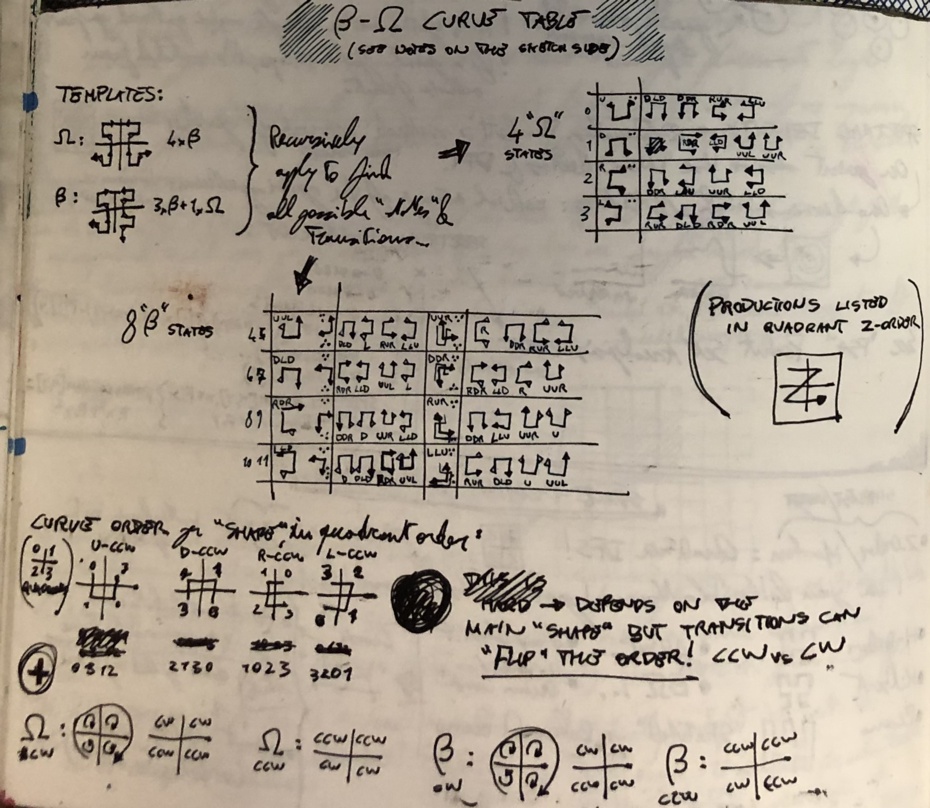 β-Ω CURVE TABLE
(SEE NOTES ON THE SKETCH SIDE)
TEMPLATES:
Ω: 4×β
β: 3×β+1×Ω
Recursively
apply to find
all possible &
Transitions
4 "Ω"
STATES
0 U DLD DDR RUR LLU
1 D UUL UUR
2 R DDR LLU UUR LLD
3 L RUR DLD RDR UUL
8 "β" STATES
45 UUL DLD L RUR LLU UUR R DDR RUR LLU
67 DLD RDR LLD UUL L DDR RDR LLD R UUR
89 RDR DDR D UUR LLD RUR DDR LLU UUR U
10 11 D DLD RDR UUL LLU RUR DLD U UUL
(PRODUCTIONS LISTED
IN QUADRANT Z-ORDER)
CURVE ORDER or "SHAPE" in quadrant order:
0 1
2 3
QUADRANTS
U-CCW D-CCW R-CCW L-CCW
0312 2130 1023 3201
HARD → DEPENDS ON THE
MAIN "SHAPE" BUT TRANSITIONS CAN
"FLIP" THE ORDER! CCW vs CW
Ω: CW CW
CW CCW CCW
Ω: CCW CCW
CCW CW CW
β: CW CW
CW CCW CW
β: CCW CCW
CCW CW CCW